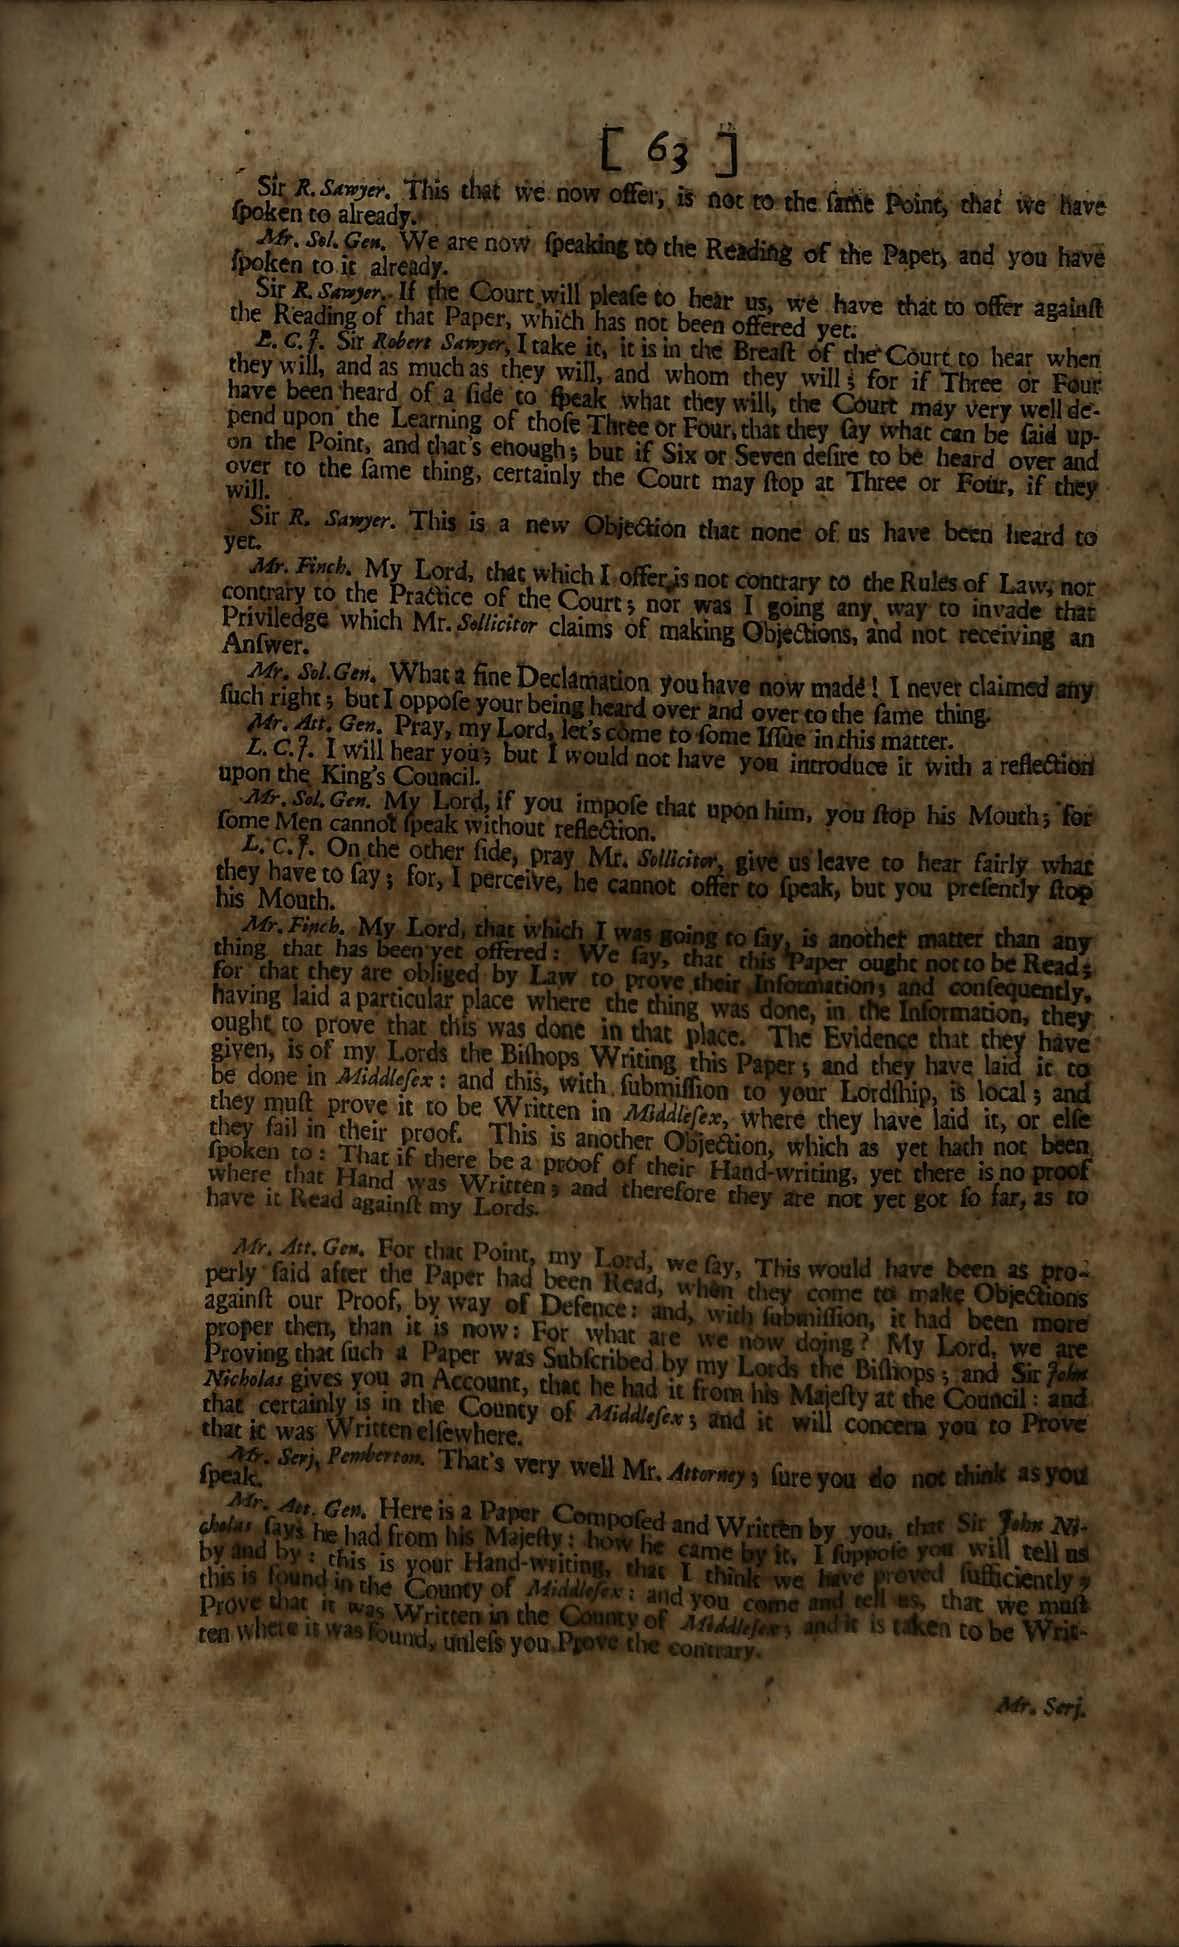 [ 63 ]
Sir R. Sawyer. This that we now offer, is not to the ſame Point, that we have
ſpoken to already.
Mr. Sol. Gen. We are now ſpeaking to the Reading of the Paper, and you have
ſpoken to it already.
Sir R. Sawyer. If the Court will pleaſe to hear us, we have that to offer againſt
the Reading of that Paper, which has not been offered yet.
L. C. J. Sir Robert Sawyer, I take it, it is in the Breaſt of the Court to hear when
they will, and as much as they will, and whom they will; for if Three or Four
have been heard of a ſide to ſpeak what they will, the Court may very well de-
pend upon the Learning of thoſe Three or Four, that they ſay what can be ſaid up-
on the Point, and that's enough; but if Six or Seven deſire to be heard over and
over to the ſame thing, certainly the Court may ſtop at Three or Four, if they
will.
Sir R. Sawyer. This is a new Objection that none of us have been heard to
yet.
Mr. Finch. My Lord, that which I offer is not contrary to the Rules of Law, nor
contrary to the Practice of the Court; nor was I going any way to invade that
Priviledge which Mr. Sollicitor claims of making Objections, and not receiving an
Anſwer.
Mr. Sol. Gen. What a fine Declamation you have now made! I never claimed any
ſuch right; but I oppoſe your being heard over and over to the ſame thing.
Mr. Att. Gen. Pray, my Lord, let's come to ſome Iſſue in this matter.
L. C. J. I will hear you; but I would not have you introduce it with a reflection
upon the King's Council.
Mr. Sol. Gen. My Lord, if you impoſe that upon him, you ſtop his Mouth; for
ſome Men cannot ſpeak without reflection.
L. C. J. On the other ſide, pray Mr. Sollicitor, give us leave to hear fairly what
they have to ſay; for, I perceive, he cannot offer to ſpeak, but you preſently ſtop
his Mouth.
Mr. Finch. My Lord, that which I was going to ſay, is another matter than any
thing that has been yet offered: We ſay, that this Paper ought not to be Read;
for that they are obliged by Law to prove their Information; and conſequently,
having laid a particular place where the thing was done, in the Information, they
ought to prove that this was done in that place. The Evidence that they have
given, is of my Lords the Biſhops Writing this Paper; and they have laid it to
be done in Middleſex: and this, with ſubmiſſion to your Lordſhip, is local; and
they muſt prove it to be Written in Middleſex, where they have laid it, or elſe
they fail in their proof. This is another Objection, which as yet hath not been
ſpoken to: That if there be a proof of their Hand-writing, yet there is no proof
where that Hand was Written; and therefore they are not yet got ſo far, as to
have it Read againſt my Lords.
Mr. Att. Gen. For that Point, my Lord, we ſay, This would have been as pro-
perly ſaid after the Paper had been Read, when they come to make Objections
againſt our Proof, by way of Defence: and, with ſubmiſſion, it had been more
proper then, than it is now: For what are we now doing? My Lord, we are
Proving that ſuch a Paper was Subſcribed by my Lords the Biſhops; and Sir John
Nicholas gives you an Account, that he had it from his Majeſty at the Council: and
that certainly is in the County of Middleſex; and it will concern you to Prove
that it was Written elſewhere.
Mr. Serj. Pemberton. That's very well Mr. Attorney; ſure you do not think as you
ſpeak.
Mr. Att. Gen. Here is a Paper Compoſed and Written by you, that Sir John Ni-
cholas ſays he had from his Majeſty: how he came by it, I ſuppoſe you will tell us
by and by: this is your Hand-writing, that I think we have proved ſufficiently;
this is found in the County of Middleſex: and you come and tell us, that we muſt
Prove that it was Written in the County of Middleſex; and it is taken to be Writ-
ten where it was found, unleſs you Prove the contrary.
Mr. Serj.